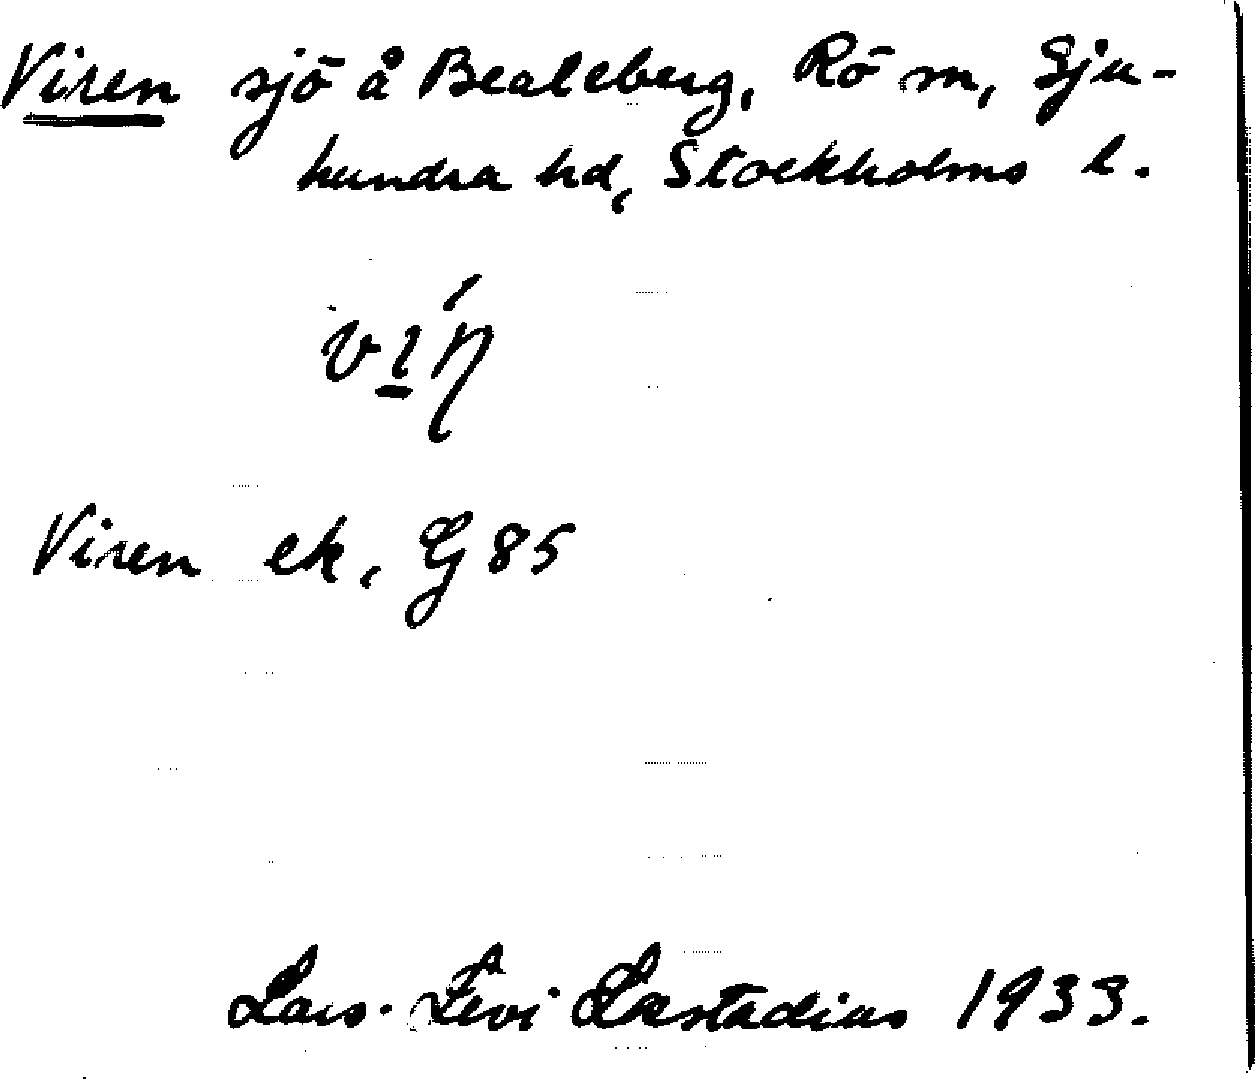 Viren sjö å Beateberg, Rö sn, Sju-
hundra hd, Stockholms l.
Viren ek, G 85
Lars-Levi Læstadius 1933.